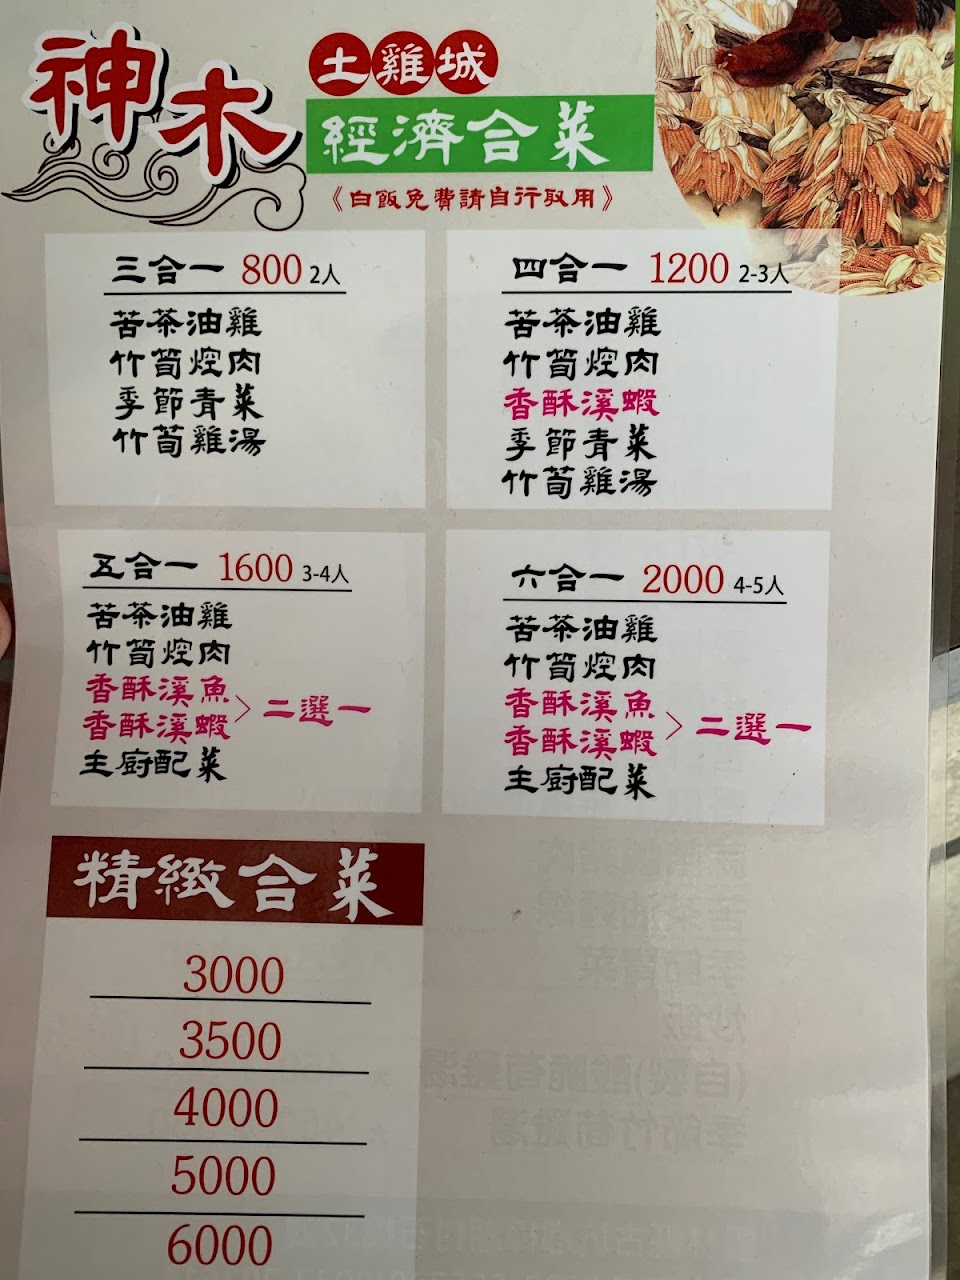 神木
土雞城
經濟合菜
《白飯免費請自行取用》
三合一 800 2人
苦茶油雞
竹筍焢肉
季節青菜
竹筍雞湯
四合一 1200 2-3人
苦茶油雞
竹筍焢肉
香酥溪蝦
季節青菜
竹筍雞湯
五合一 1600 3-4人
苦茶油雞
竹筍焢肉
香酥溪魚
香酥溪蝦 > 二選一
主厨配菜
六合一 2000 4-5人
苦茶油雞
竹筍焢肉
香酥溪魚
香酥溪蝦 > 二選一
主厨配菜
精緻合菜
3000
3500
4000
5000
6000